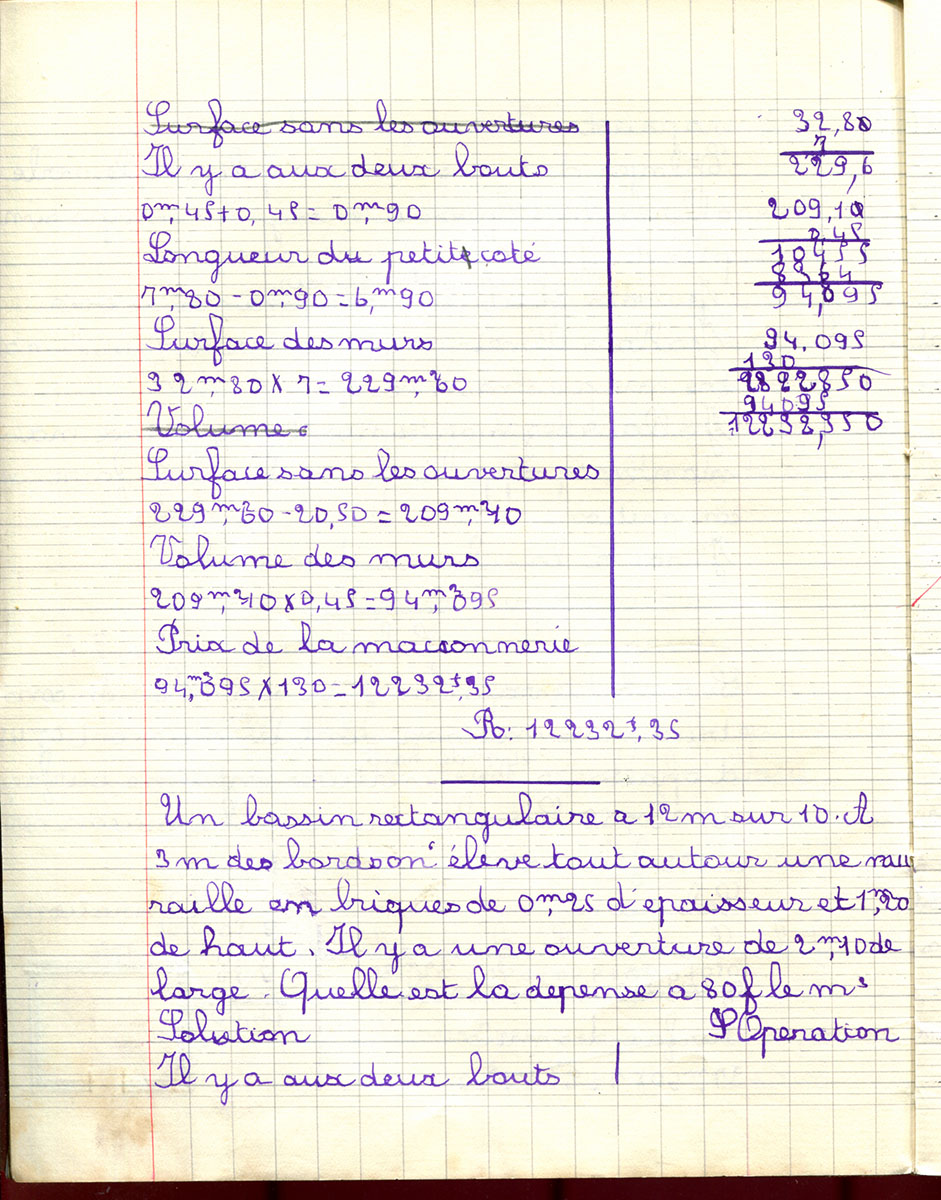 Surface sans les ouvertures
Il y a aux deux bouts
0m,45+0,45=0m,90
Longueur du petit coté
7m,80-0m,90=6,m90
Surface des murs
32m,80×7=229m²,60
Volume
Surface sans les ouvertures
229m²,60-20,50=209m²,10
Volume des murs
209m²,10×0,45=94,m³095
Prix de la maçonnerie
94,m³095×130=12232f,35
R: 12232f,35
32,80
7
229,6
209,10
0,45
10455
8364
94,095
94.095
130
2822850
94095
12232,350
Un bassin rectangulaire a 12m sur 10. A
3m des bords on élève tout autour une mu
raille en briques de 0m,25 d'epaisseur et 1m,20
de haut. Il y a une ouverture de 2m,10 de
large. Quelle est la depense a 80f le m³
Solution Operation
Il y a aux deux bouts